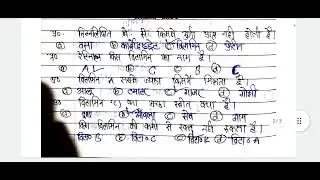 प्र०. निम्नलिखित में से किसमें ऊर्जा प्राप्त नहीं होती है।
(a) वसा (b) कार्बोहाइड्रेट (c) विटामिन (d) प्रोटीन
प्र०. रेटिनॉल किस विटामिन का नाम है।
(a) A (b) (c) B (d) C
प्र०. विटामिन A सबसे ज्यादा किसमें मिलता है।
(a) आलू (b) टमाटर (c) गाजर (d) गोभी
प्र०. विटामिन 'C' का अच्छा स्रोत क्या है।
(a) दूध (b) आँवला (c) सेब (d) आम
किस विटामिन की कमी से रक्त नहीं रुकता है।
विटा० B (b) विटा० C (c) विटा० K (d) विटा० A
2/3